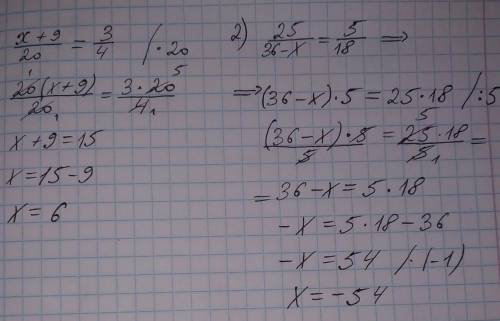 (x+9)/20 = 3/4 /·20
20(x+9)/20 = 3·20/4
1 1 5 1
x+9=15
x=15-9
x=6
2) 25/(36-x) = 5/18 ⇒
⇒(36-x)·5=25·18 /:5
(36-x)·5/5 = 25·18/5 =
5 1
=36-x=5·18
-x=5·18-36
-x=54 /·(-1)
x=-54